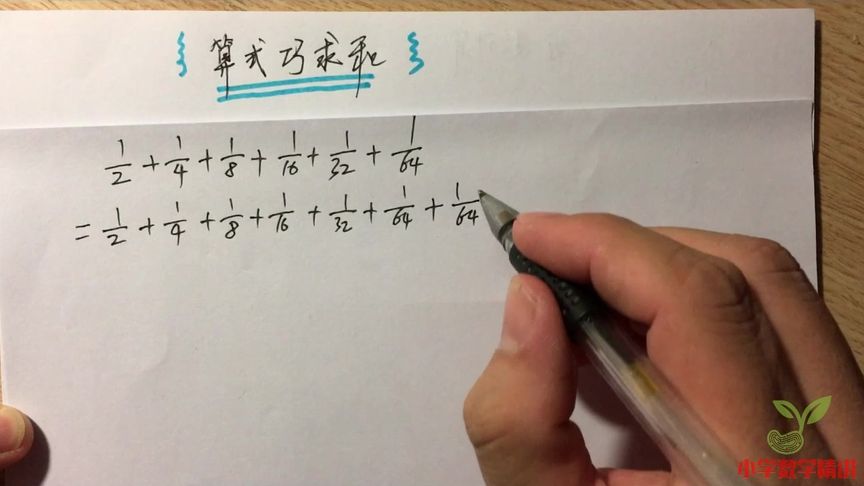 算式巧求和
1/2 + 1/4 + 1/8 + 1/16 + 1/32 + 1/64
= 1/2 + 1/4 + 1/8 + 1/16 + 1/32 + 1/64 + 1/64
小学数学精讲